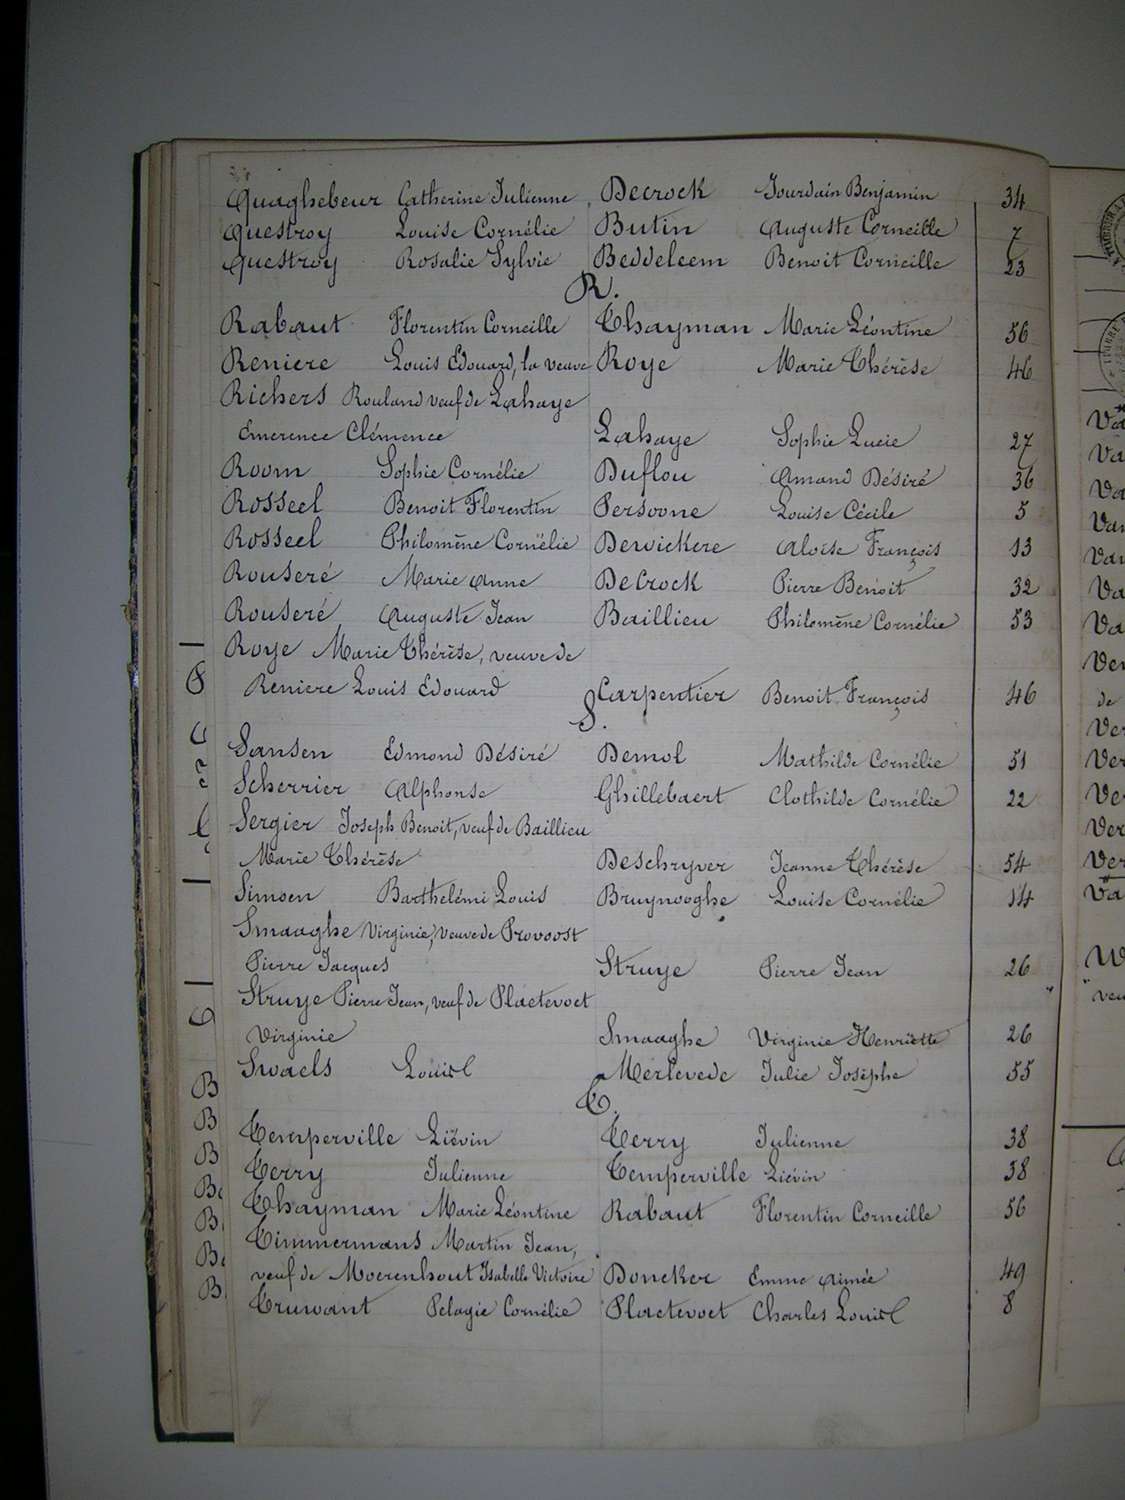 Quaghebeur Catherine Julienne Decrock Jourdain Benjamin 34
Questroy Louise Cornélie Butin Auguste Corneille 7
Questroy Rosalie Sylvie Beddeleem Benoit Corneille 23
R.
Rabaut Florentin Corneille Thayman Marie Léontine 56
Reniere Louis Edouard, la veuve Roye Marie Thérèse 46
Richers Rouland veuf de Lahaye
Emerence Clémence Lahaye Sophie Lucie 27
Room Sophie Cornélie Duflou Amand Désiré 36
Rosseel Benoit Florentin Persoone Louise Cécile 5
Rosseel Philomène Cornélie Dewickere Aloïse François 13
Rouseré Marie Anne DeCrock Pierre Benoit 32
Rouseré Auguste Jean Baillieu Philomène Cornélie 53
Roye Marie Thérèse, veuve de
Reniere Louis Edouard Carpentier Benoit François 46
S.
Sansen Edmond Désiré Demol Mathilde Cornélie 51
Scherrier Alphonse Ghillebaert Clothilde Cornélie 22
Sergier Joseph Benoit, veuf de Baillieu
Marie Thérèse Deschryver Jeanne Thérèse 54
Simoen Barthélémi Louis Bruynooghe Louise Cornélie 14
Smaaghe Virginie, veuve de Provoost
Pierre Jacques Struye Pierre Jean 26
Struye Pierre Jean, veuf de Plaetevoet
Virginie Smaaghe Virginie Henriette 26
Swaels Louis Merlevede Julie Josèphe 55
T.
Temperville Liévin Terry Julienne 38
Terry Julienne Temperville Liévin 38
Thayman Marie Léontine Rabaut Florentin Corneille 56
Timmermans Martin Jean,
veuf de Moerenhout Isabelle Victoire Doncker Emme Aimée 49
Truwant Pelagie Cornélie Plaetevoet Charles Louis 8